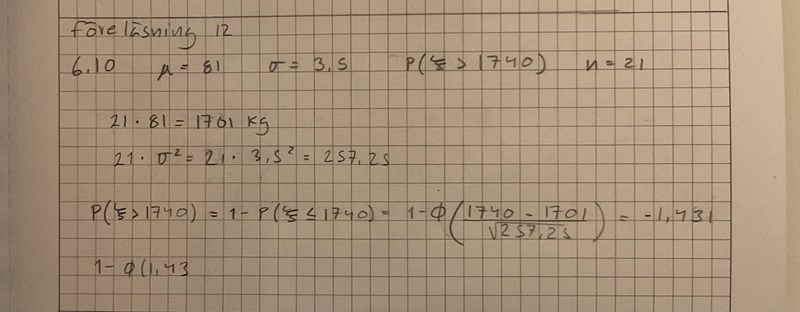 Föreläsning 12
6.10 μ = 81 σ = 3,5 P(ξ > 1740) n = 21
21 · 81 = 1701 kg
21 · σ² = 21 · 3,5² = 257,25
P(ξ > 1740) = 1 - P(ξ ≤ 1740) = 1 - Φ(1740 - 1701 / √257,25) = -1,431
1 - Φ(1,43